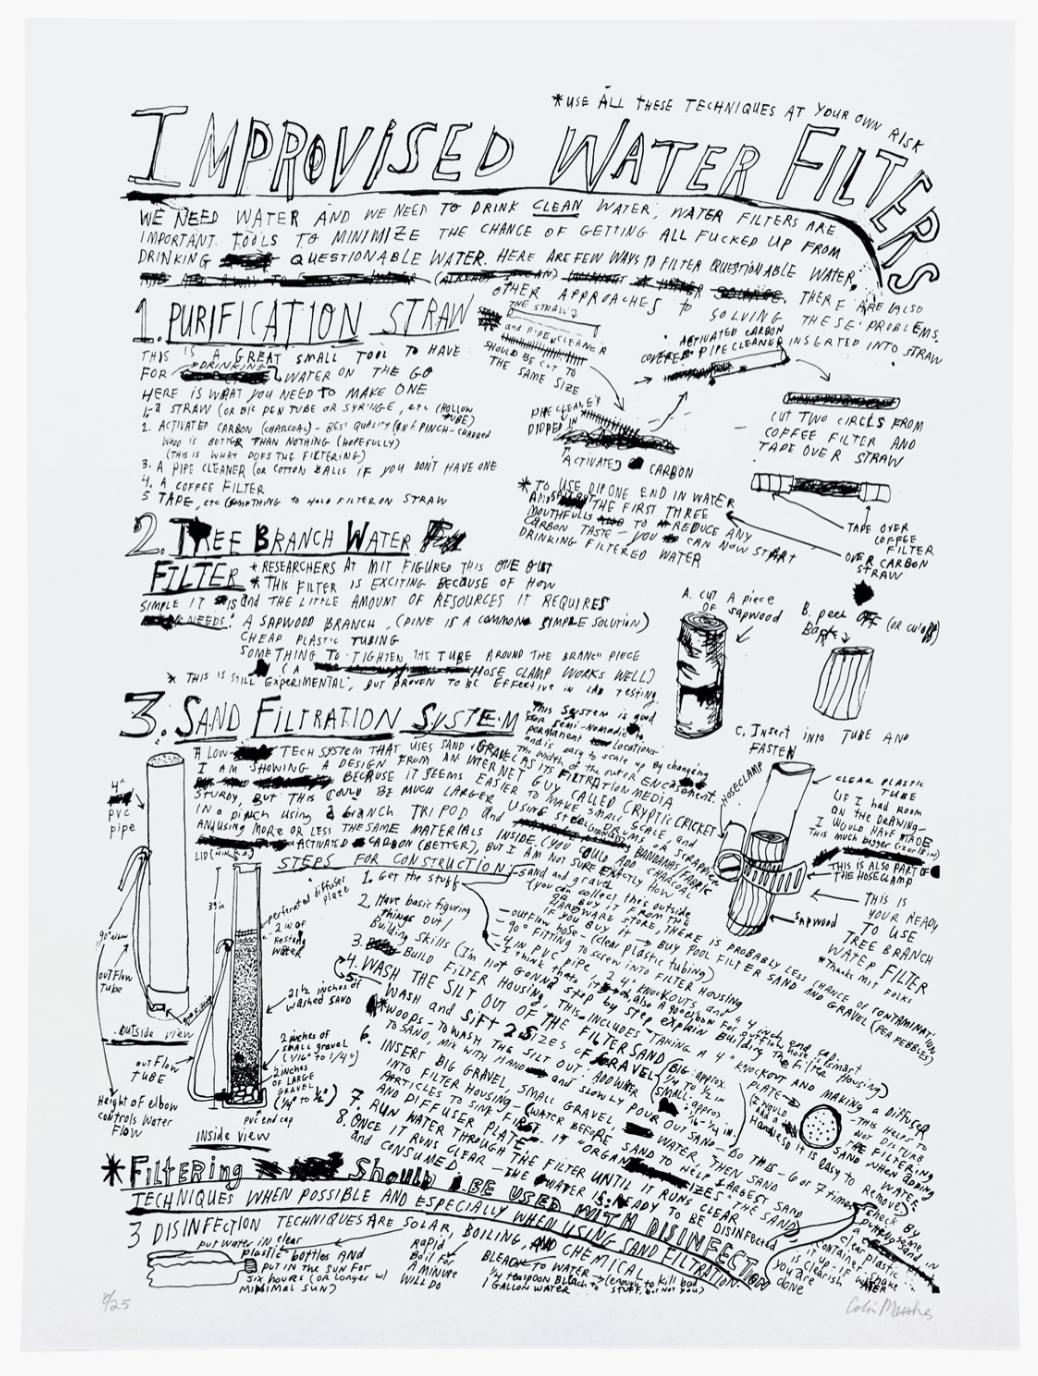 *USE ALL THESE TECHNIQUES AT YOUR OWN RISK
IMPROVISED WATER FILTERS
WE NEED WATER AND WE NEED TO DRINK CLEAN WATER, WATER FILTERS ARE
IMPORTANT TOOLS TO MINIMIZE THE CHANCE OF GETTING ALL FUCKED UP FROM
DRINKING QUESTIONABLE WATER. HERE ARE FEW WAYS TO FILTER QUESTIONABLE WATER,
THERE ARE ALSO
OTHER APPROACHES to SOLVING THESE PROBLEMS.
1. PURIFICATION STRAW
THIS IS A GREAT SMALL TOOL TO HAVE
FOR DRINKING WATER ON THE GO
HERE IS WHAT YOU NEED TO MAKE ONE
1. a STRAW (OR BIC PEN TUBE OR SYRINGE, etc (HOLLOW TUBE)
2. ACTIVATED CARBON (CHARCOAL) - BEST QUALITY (IN A PINCH - CHARRED
WOOD IS BETTER THAN NOTHING (HOPEFULLY)
(THIS IS WHAT DOES THE FILTERING)
3. A PIPE CLEANER (or COTTON BALLS IF YOU DON'T HAVE ONE
4. A COFFEE FILTER
5 TAPE, etc (SOMETHING to HOLD FILTER ON STRAW
THE STRAW
and PIPE CLEANER
SHOULD BE CUT TO
THE SAME SIZE
PIPE CLEANER
DIPPED IN
ACTIVATED CARBON
ACTIVATED CARBON
COVERED PIPE CLEANER INSERTED INTO STRAW
CUT TWO CIRCLES FROM
COFFEE FILTER AND
TAPE OVER STRAW
TAPE OVER
COFFEE
FILTER
OVER CARBON
STRAW
*TO USE DIP ONE END IN WATER
AND THE FIRST THREE
MOUTHFULLS TO REDUCE ANY
CARBON TASTE - YOU CAN NOW START
DRINKING FILTERED WATER
2. TREE BRANCH WATER
FILTER
* RESEARCHERS AT MIT FIGURED THIS ONE OUT
* THIS FILTER IS EXCITING BECAUSE OF HOW
SIMPLE IT is and THE LITTLE AMOUNT OF RESOURCES IT REQUIRES
NEEDS: A SAPWOOD BRANCH, (PINE IS A COMMON SIMPLE SOLUTION)
CHEAP PLASTIC TUBING
SOMETHING TO TIGHTEN THE TUBE AROUND THE BRANCH PIECE
(A HOSE CLAMP WORKS WELL)
* THIS IS STILL EXPERIMENTAL, BUT PROVEN TO BE EFFECTIVE IN LAB TESTING
A. CUT A piece
OF sapwood
B. peel OFF (OR cut off)
BARK
C. Insert into TUBE AND
FASTEN
HOSECLAMP
CLEAR PLASTIC
TUBE
(IF I HAD ROOM
ON THE DRAWING -
I WOULD HAVE MADE
THIS MUCH bigger
THIS IS ALSO PART OF
THE HOSECLAMP
sapwood
THIS IS
YOUR READY
TO USE
TREE BRANCH
WATER FILTER
*Thanks MIT FOLKS
3. SAND FILTRATION SYSTEM
This system is good
for semi-nomadic or
permanent locations
and is easy to scale up by changing
the width of the outer Encasement.
A LOW TECH SYSTEM THAT USES SAND + GRAVEL AS ITS FILTRATION MEDIA
I AM SHOWING A DESIGN FROM AN INTERNET GUY CALLED CRYPTIC CRICKET
BECAUSE IT SEEMS EASIER TO MAKE SMALL SCALE and
STURDY, BUT THIS COULD BE MUCH LARGER USING STEEL DRUMS OR
IN a pinch using a BRANCH TRIPOD and BANDANAS/FABRIC
AND USING MORE OR LESS THE SAME MATERIALS INSIDE. (YOU COULD ADD CHARCOAL
ACTIVATED CARBON (BETTER), BUT I AM NOT SURE EXACTLY HOW
4"
pvc
pipe
90° elbow
OUTFLOW
TUBE
Outside view
39in
perforated diffuser
plate
2 IN OF
resting
water
21½ inches of
washed SAND
2 inches of
small gravel
(1/16" to 1/4")
2 inches
OF LARGE
GRAVEL
(1/4" to ½")
OUTFLOW
TUBE
Height of elbow
controls Water
FLOW
pvc end cap
INside view
STEPS FOR CONSTRUCTION
1. Get the stuff
sand and gravel
(you can collect this outside
OR BUY IT FROM THE
HARDWARE STORE, THERE IS PROBABLY LESS CHANCE OF CONTAMINATION,
IF YOU BUY IT → BUY POOL FILTER SAND AND GRAVEL (PEA PEBBLES)
- outflow hose - (clear plastic tubing)
- 90° FITTING to screw INTO FILTER HOUSING
- 4 IN PVC pipe, 2 4" KNOCKOUTS and a 4 inch end cap.
2. Have basic figuring
Things out/
Building skills
3. BUILD FILTER HOUSING, THIS INCLUDES TAKING A 4" KNOCKOUT AND MAKING a DIFFUSER
PLATE
(I'm not GONNA step by step explain Building the Filter Housing)
4. WASH THE SILT OUT OF THE FILTER SAND
5. WASH and SIFT 2 SIZES OF GRAVEL
(BIG: approx.
1/4 to ½ in
SMALL: approx
1/16 - 1/4 in.
*WOOPS - TO WASH THE SILT OUT: ADD WATER
TO SAND, MIX WITH HAND and SLOWLY POUR OUT SAND - DO THIS - 6 or 7 times
6. INSERT BIG GRAVEL, SMALL GRAVEL, THEN SAND
INTO FILTER HOUSING (WATER BEFORE SAND TO HELP LARGEST SAND
PARTICLES TO SINK FIRST. IT "ORGANIZES" THE SAND)
AND DIFFUSER PLATE
7. RUN WATER THROUGH THE FILTER UNTIL IT RUNS CLEAR
8. ONCE IT RUNS CLEAR - THE WATER IS READY TO BE DISINFECTED
and CONSUMED.
- THIS HELPS TO
NOT DISTURB
THE FILTERING
SAND WHEN adding
WATER
it is EASY to REMOVE)
check By
putting some
sand in
a clear plastic
container, shake
it up - IF WATER
is clearish
you are
done
*Filtering Should BE USED WITH DISINFECTION
TECHNIQUES WHEN POSSIBLE AND ESPECIALLY WHEN USING SAND FILTRATION.
3 DISINFECTION TECHNIQUES ARE SOLAR, BOILING, AND CHEMICAL
put water in clear
plastic bottles AND
PUT IN THE SUN FOR
SIX HOURS (OR LONGER w/
MINIMAL SUN)
Rapid
Boil for
A MINUTE
WILL DO
BLEACH TO WATER → (enough to kill bad
STUFF, but not you)
¼ teaspoon BLEACH to
1 GALLON WATER
/25